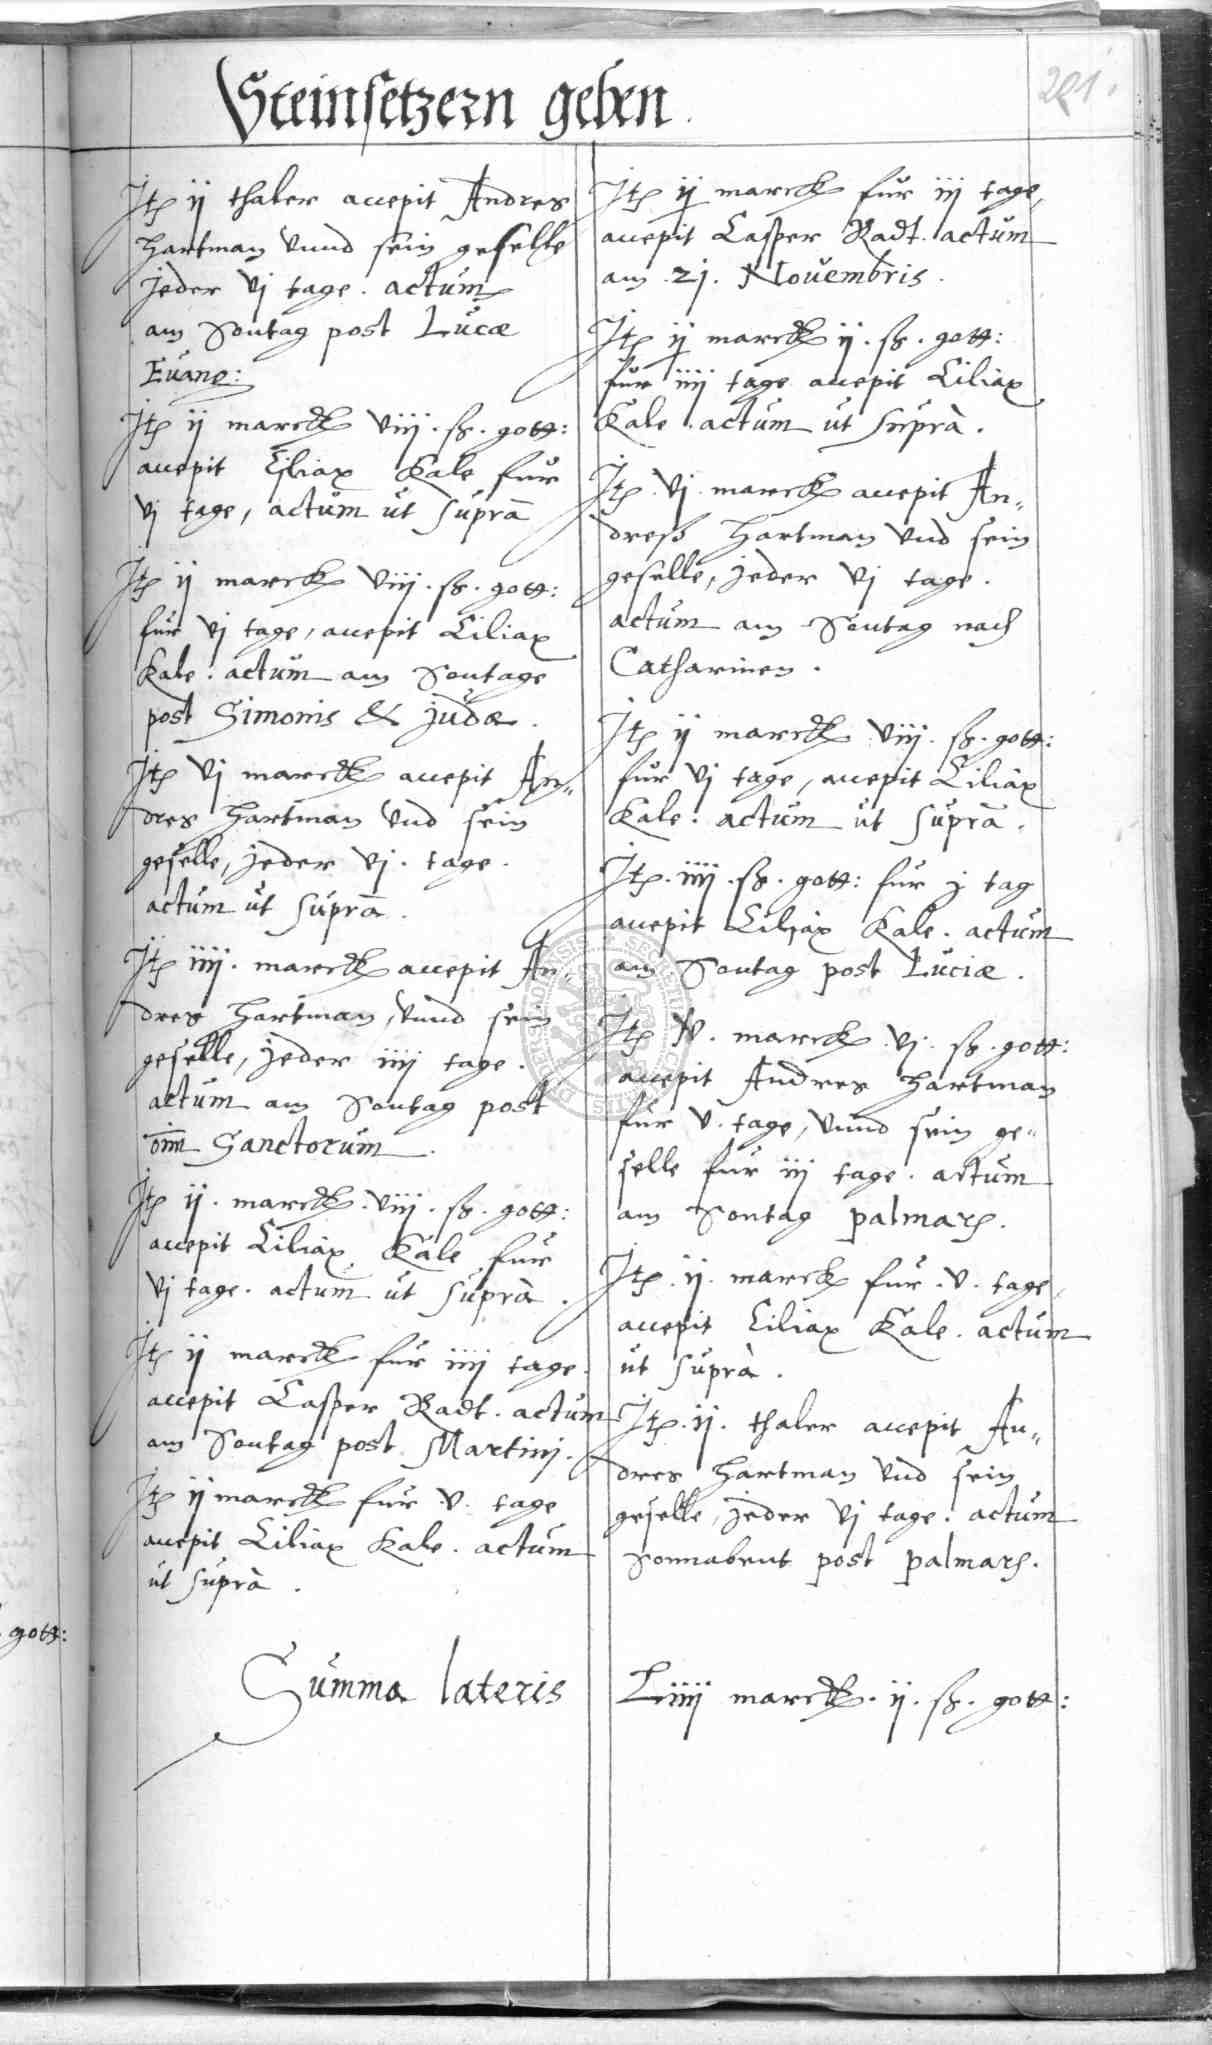 Steinsetzern geben.
291.
Jtẽ ij thaler accepit Andres
Hartman vnnd sein geselle
jeder vj tage. actum
am Sontag post Lucæ
Euang:
Jtẽ ij marck viij. ß. gott:
accepit Ciliax Kale fur
vj tage, actum ut supra
Jtẽ ij marck viij. ß. gott:
fur vj tage, accepit Ciliax
Kale. actum am Sontage
post Simonis & judæ.
Jtẽ vj marck accepit An„
dres Hartman vnd sein
geselle, jeder vj. tage.
actum ut supra.
Jtẽ iiij. marck accepit An„
dres Hartman, vnnd sein
geselle, jeder iiij tage.
actum am Sontag post
om̄ Sanctorum.
Jtẽ ij. marck. viij. ß. gott:
accepit Ciliax Kale fur
vj tage. actum ut supra.
Jtẽ ij marck fur iiij tage.
accepit Casper Radt. actum
am Sontag post Martinj.
Jtẽ ij marck fur v. tage
accepit Ciliax Kale. actum
ut supra.
Jtẽ ij marck fur iij tage,
accepit Casper Radt. actum
am .21. Nouembris.
Jtẽ ij marck ij. ß. gott:
fur iiij tage accepit Ciliax
Kale. actum ut supra.
Jtẽ. vj. marck accepit An„
dreß Hartman vnd sein
geselle, jeder vj tage.
actum am Sontag nach
Catharinen.
Jtẽ ij marck viij. ß. gott:
fur vj tage, accepit Ciliax
Kale. actum ut supra.
Jtẽ. iiij. ß. gott: fur j tag
accepit Ciliax Kale. actum
am Sontag post Luciæ.
Jtẽ iv. marck. vj. ß. gott:
accepit Andres Hartman
fur v. tage, vnnd sein ge„
selle fur iij tage. actum
am Sontag palmarũ.
Jtẽ. ij. marck fur .v. tage,
accepit Ciliax Kale. actum
ut supra.
Jtẽ. ij. thaler accepit An„
dres Hartman vnd sein
geselle, jeder vj tage. actum
Sonnabent post palmarũ.
Summa lateris Liiij marck. ij. ß. gott:
gott: